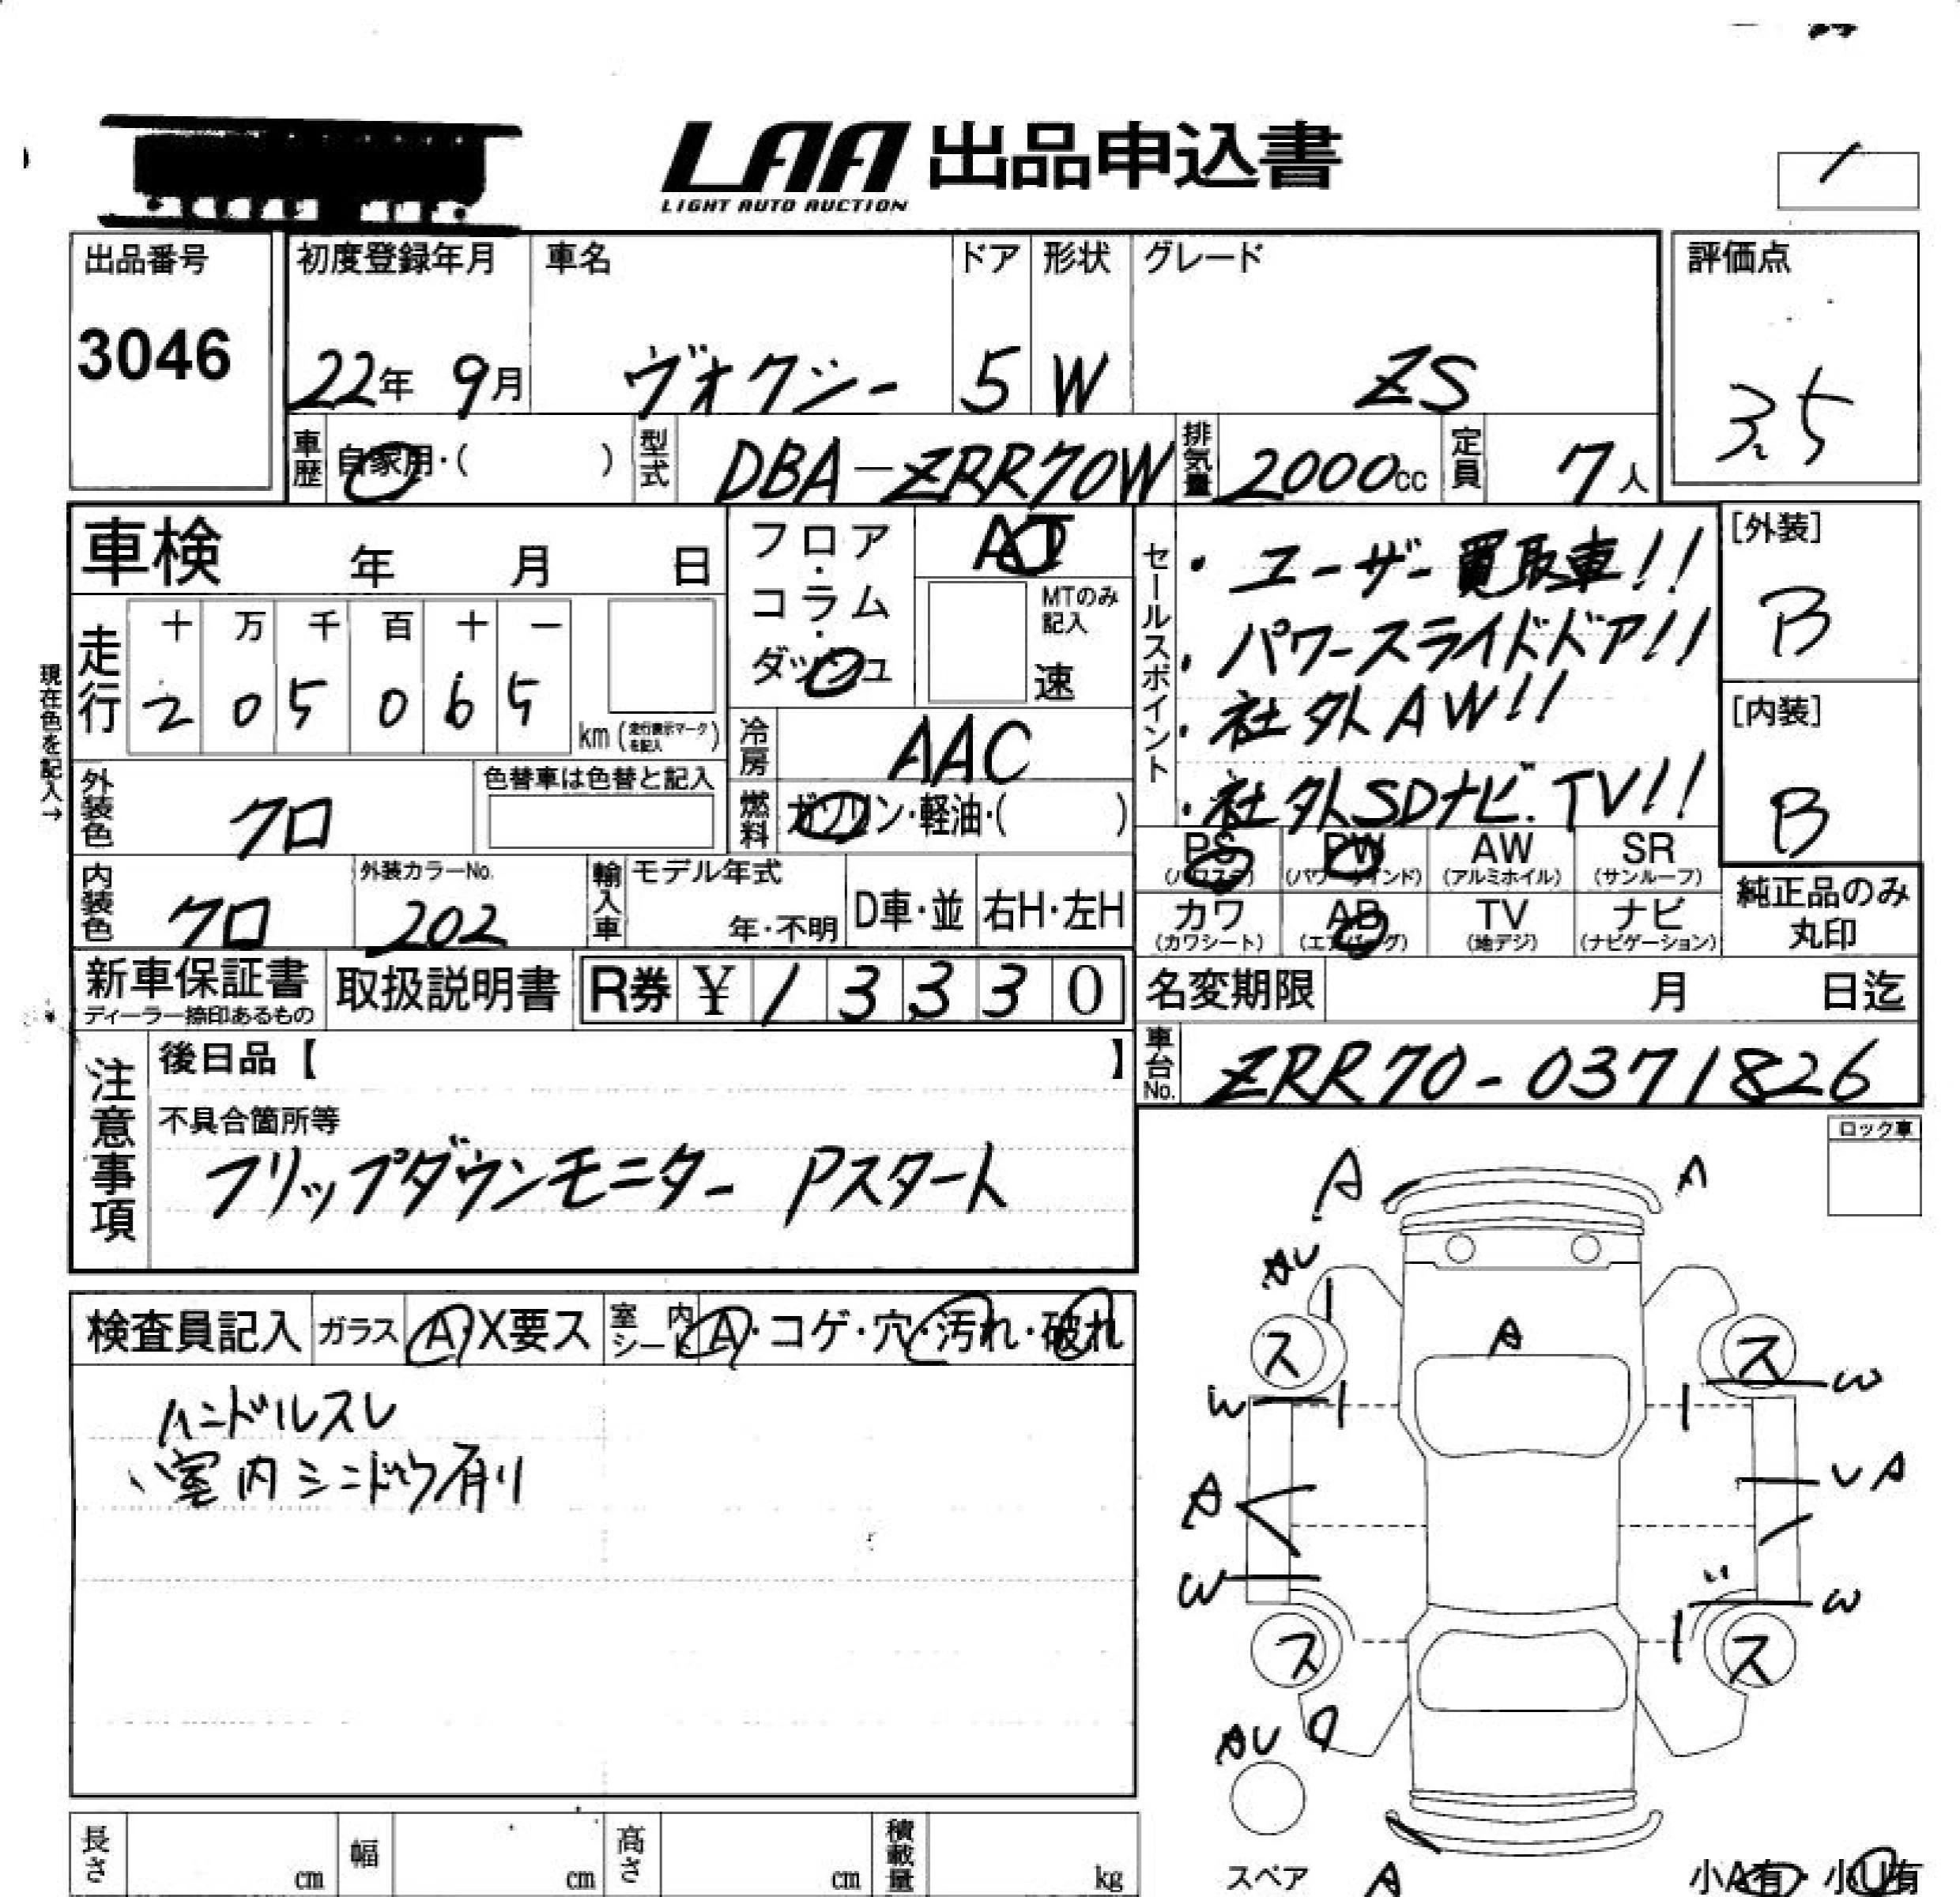 LAA 出品申込書
LIGHT AUTO AUCTION
出品番号 初度登録年月 車名 ドア 形状 グレード 評価点
3046 22年 9月 ヴォクシー 5 W ZS 3.5
車歴 自家用・( ) 型式 DBA-ZRR70W 排気量 2000cc 定員 7人
車検 年 月 日
フロア・コラム・ダッシュ AT
MTのみ記入 速
セールスポイント
・ユーザー買取車!!
・パワースライドドア!!
・社外AW!!
・社外SDナビ.TV!!
[外装]
B
[内装]
B
現在色を記入→
走行 十 万 千 百 十 一
2 0 5 0 6 5 km (走行表示マークを記入)
冷房 AAC
外装色 クロ 色替車は色替と記入
燃料 ガソリン・軽油・( )
PS (パワステ) PW (パワーウインド) AW (アルミホイル) SR (サンルーフ)
内装色 クロ 外装カラーNo. 202 輸入車 モデル年式 年・不明 D車・並 右H・左H
カワ (カワシート) AB (エアバッグ) TV (地デジ) ナビ (ナビゲーション)
純正品のみ丸印
新車保証書 ディーラー捺印あるもの 取扱説明書 R券 ¥ 1 3 3 3 0
名変期限 月 日迄
車台No. ZRR70-0371826
注意事項 後日品【 】
不具合箇所等
フリップダウンモニター Pスタート
ロック車
A A
AU
A
ス ス
W W
A U A
W W
ス ス
AU
検査員記入 ガラス A・X要ス 室内シート A・コゲ・穴・汚れ・破れ
ハンドルスレ
室内シンドウ有り
長さ cm 幅 cm 高さ cm 積載量 kg
スペア A 小A有・小U有